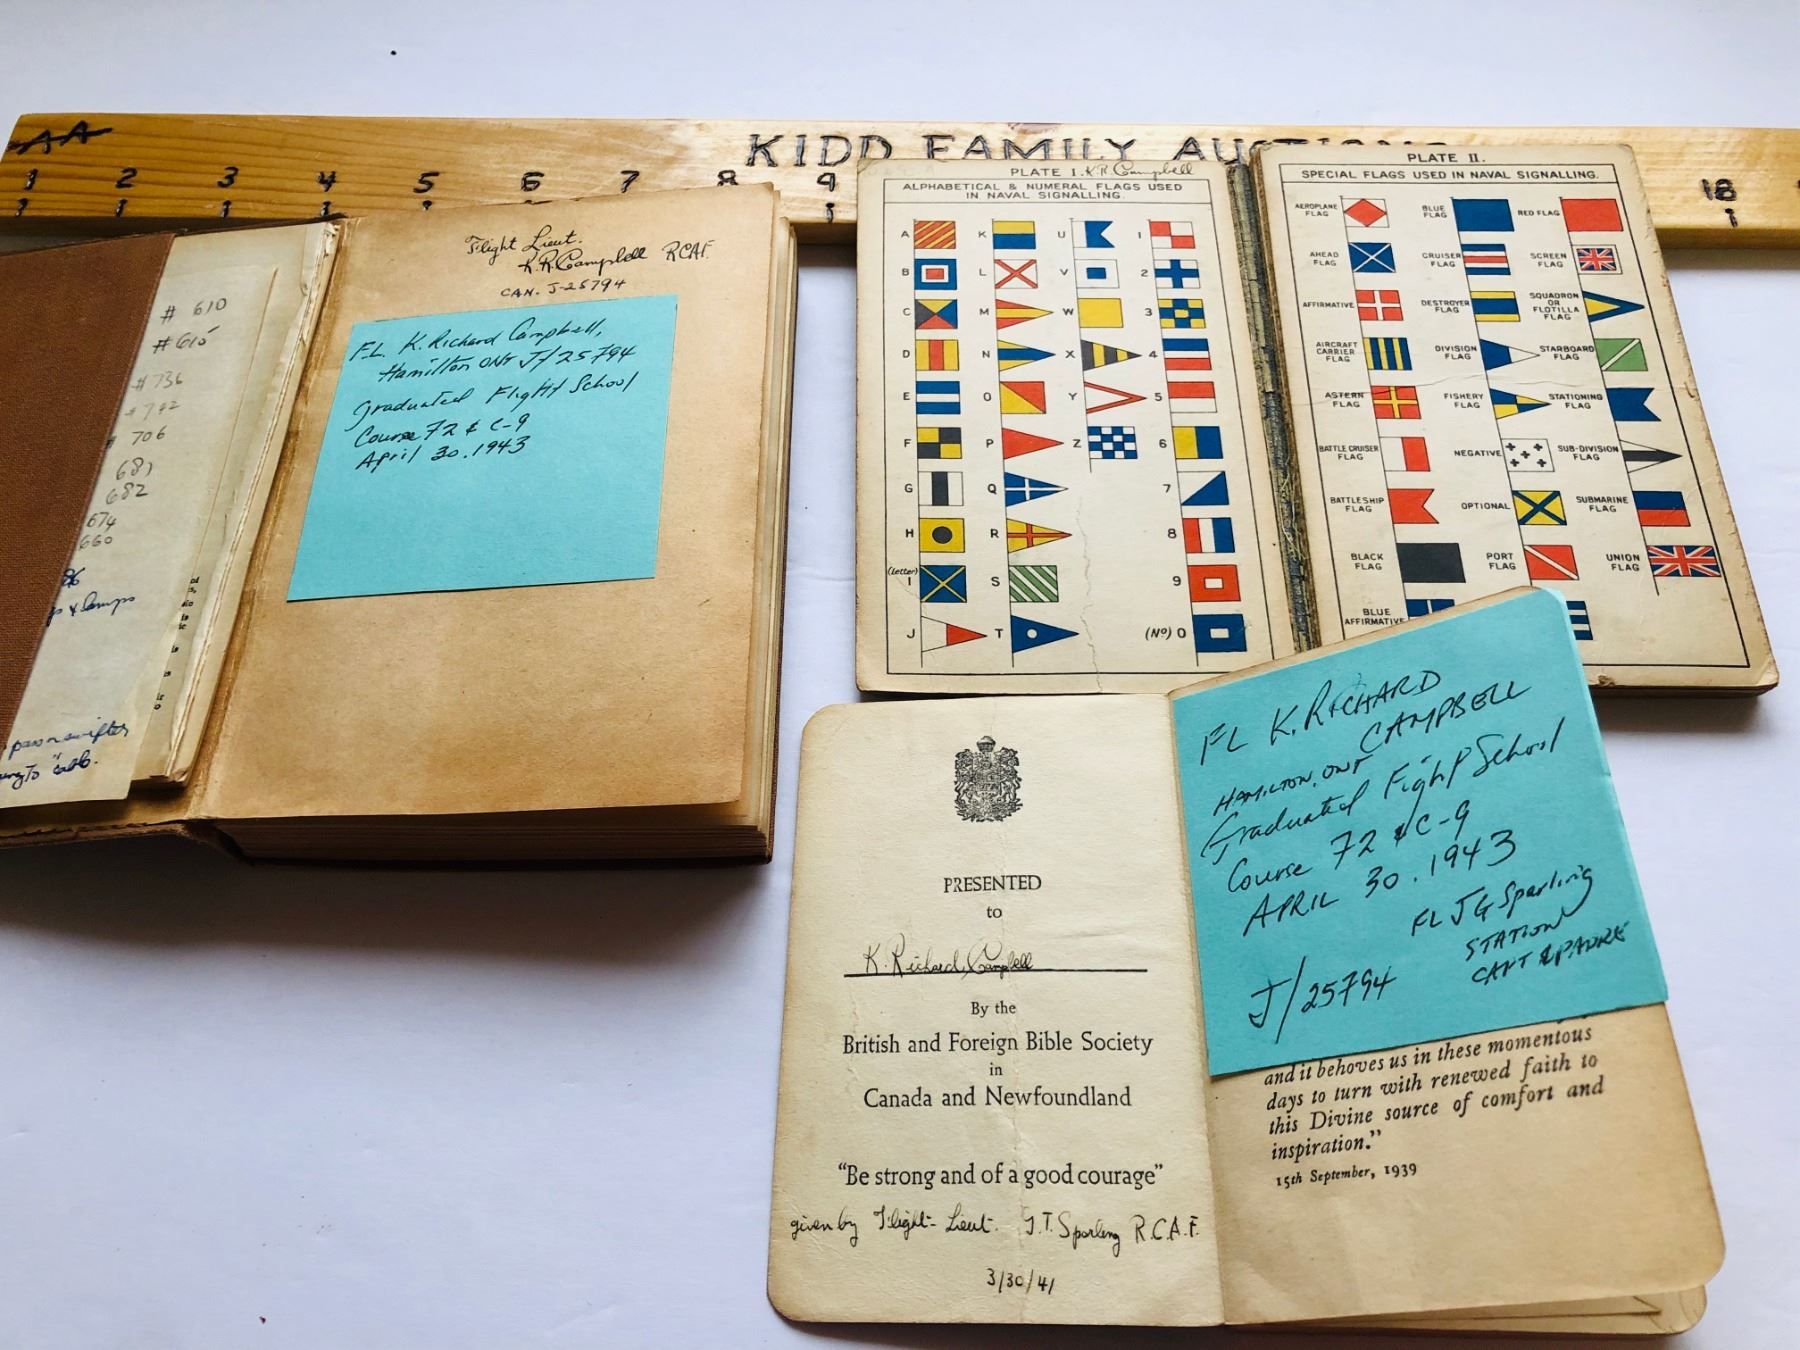 AA
KIDD FAMILY
1 2 3 4 5 6 7 8 9 18
# 610
# 615
# 736
# 742
# 706
681
682
674
660
& lamps
Flight Lieut.
K.R. Campbell RCAF.
CAN. J-25794
FL. K. Richard Campbell,
Hamilton ONT J/25794
Graduated Flight School
Course 72 & C-9
April 30. 1943
PLATE I. K.R. Campbell
ALPHABETICAL & NUMERAL FLAGS USED
IN NAVAL SIGNALLING.
A K U 1
B L V 2
C M W 3
D N X 4
E O Y 5
F P Z 6
G Q 7
H R 8
(Letter)
I S 9
J T (No) 0
PLATE II.
SPECIAL FLAGS USED IN NAVAL SIGNALLING.
AEROPLANE FLAG BLUE FLAG RED FLAG
AHEAD FLAG CRUISER FLAG SCREEN FLAG
AFFIRMATIVE DESTROYER FLAG SQUADRON OR FLOTILLA FLAG
AIRCRAFT CARRIER FLAG DIVISION FLAG STARBOARD FLAG
ASTERN FLAG FISHERY FLAG STATIONING FLAG
BATTLE CRUISER FLAG NEGATIVE SUB-DIVISION FLAG
BATTLESHIP FLAG OPTIONAL SUBMARINE FLAG
BLACK FLAG PORT FLAG UNION FLAG
BLUE AFFIRMATIVE
PRESENTED
to
K. Richard Campbell
By the
British and Foreign Bible Society
in
Canada and Newfoundland
"Be strong and of a good courage"
given by Flight-Lieut. J.T. Sparling R.C.A.F.
3/30/41
FL K. RICHARD
CAMPBELL
HAMILTON. ONT
Graduated Flight School
Course 72 & C-9
APRIL 30. 1943
FL JG Sparling
STATION
J/25794
and it behoves us in these momentous
days to turn with renewed faith to
this Divine source of comfort and
inspiration."
15th September, 1939